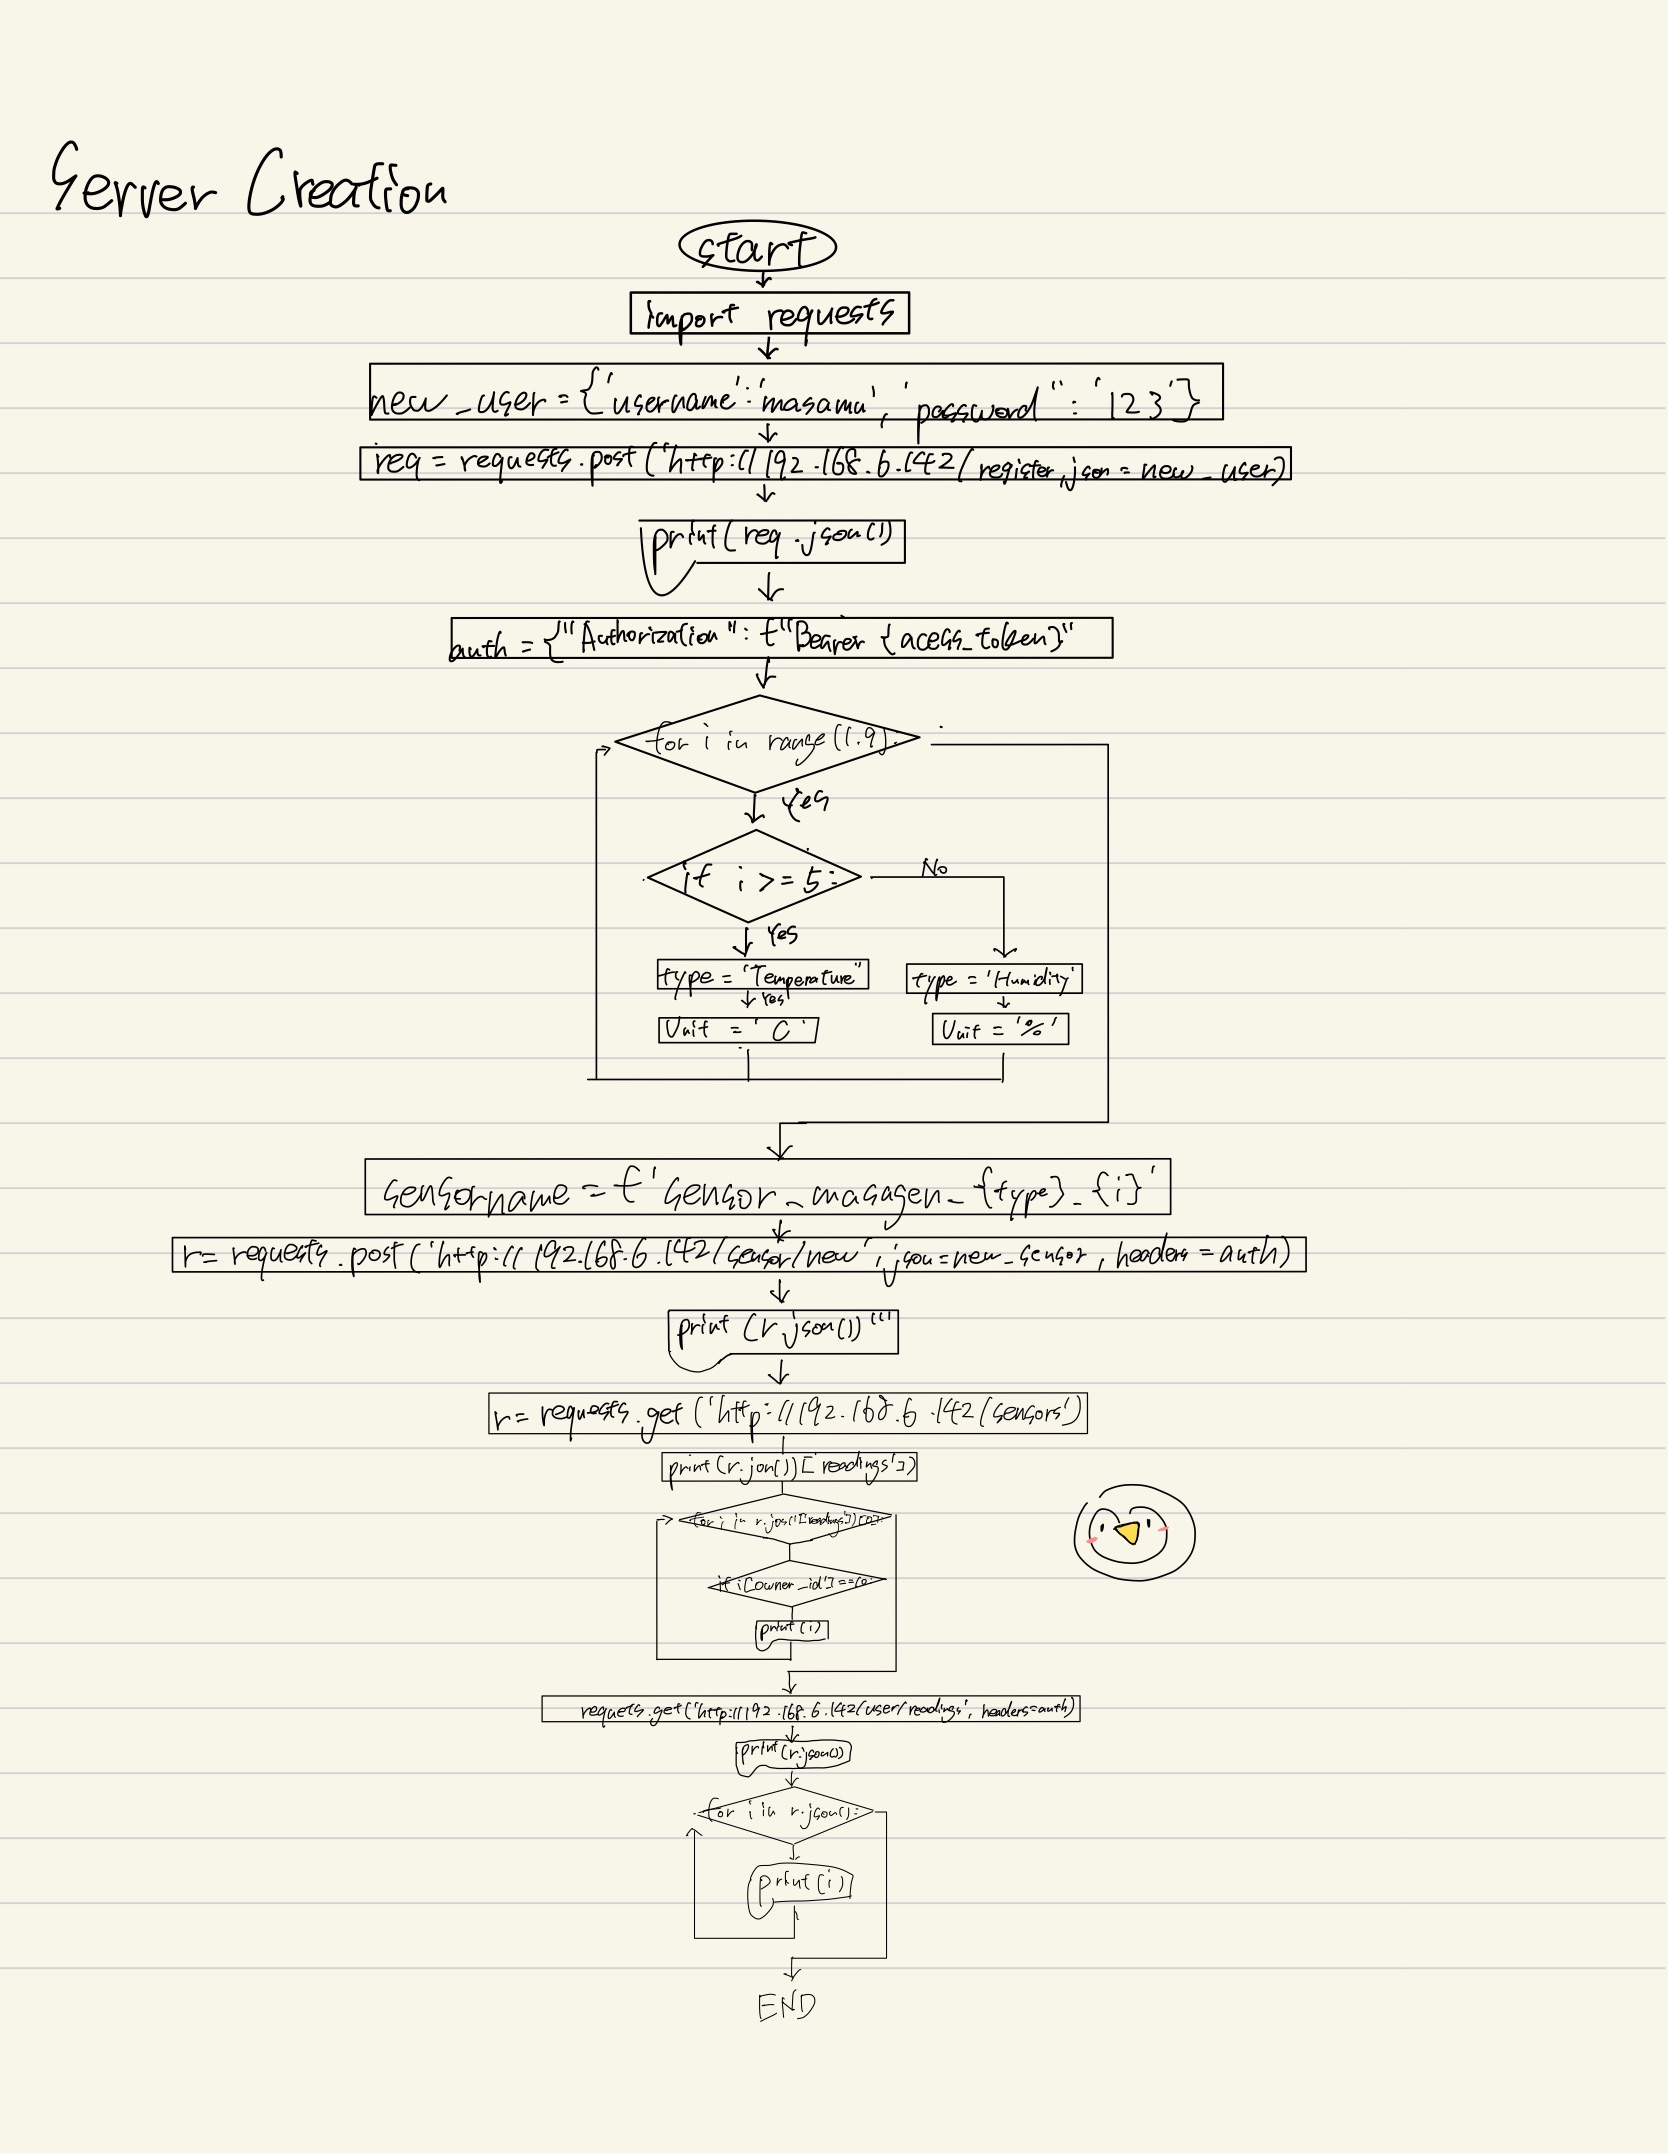 Server Creation
start
import requests
new_user = {'username':'masamu', 'password": '123'}
req = requests.post('http://192.168.6.142/register,json = new_user)
print(req.json()
auth = {"Authorization": f"Bearer {acess_token}"
for i in range(1.9):
Yes
if i >= 5:
No
Yes
type = 'Temperature"
type = 'Humidity'
Yes
Unit = 'C'
Unit = '%'
sensorname = f'sensor_masagen_{type}_{i}'
r= requests.post('http://192.168.6.142/sensor/new',json=new_sensor, headers = auth)
print (r.json()) '''
r= requests.get('http://192.168.6.142/sensors')
print(r.jon())['readings'])
for i in
if i['owner_id'] ==10:
print(i)
requets.get('http://192.168.6.142/user/readings', headers=auth)
print(r.json())
for i in r.json():
print(i)
END